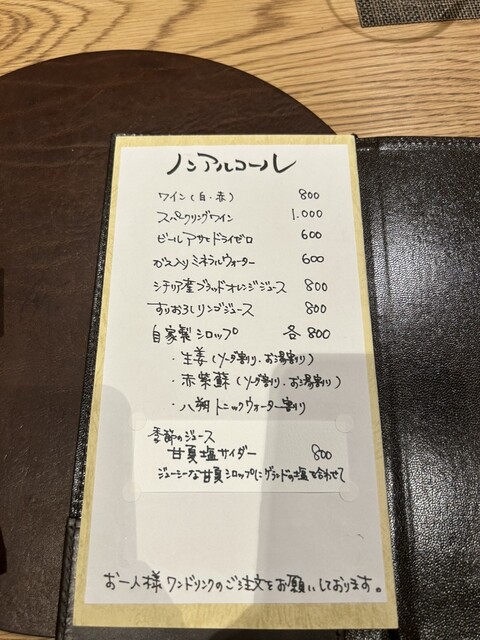 ノンアルコール
ワイン(白・赤) 800
スペクリングワイン 1.000
ビールアサヒドライゼロ 600
ガス入りミネラルウォーター 600
シチリア産ブラッドオレンジジュース 800
すりおろしリンゴジュース 800
自家製シロップ 各800
・生姜(ソーダ割り、お湯割り)
・赤紫蘇(ソーダ割り、お湯割り)
・八朔トニックウォーター割り
季節のジュース
甘夏塩サイダー 800
ジューシーな甘夏シロップにゲランドの塩を合わせて
お一人様ワンドリンクのご注文をお願いしております。